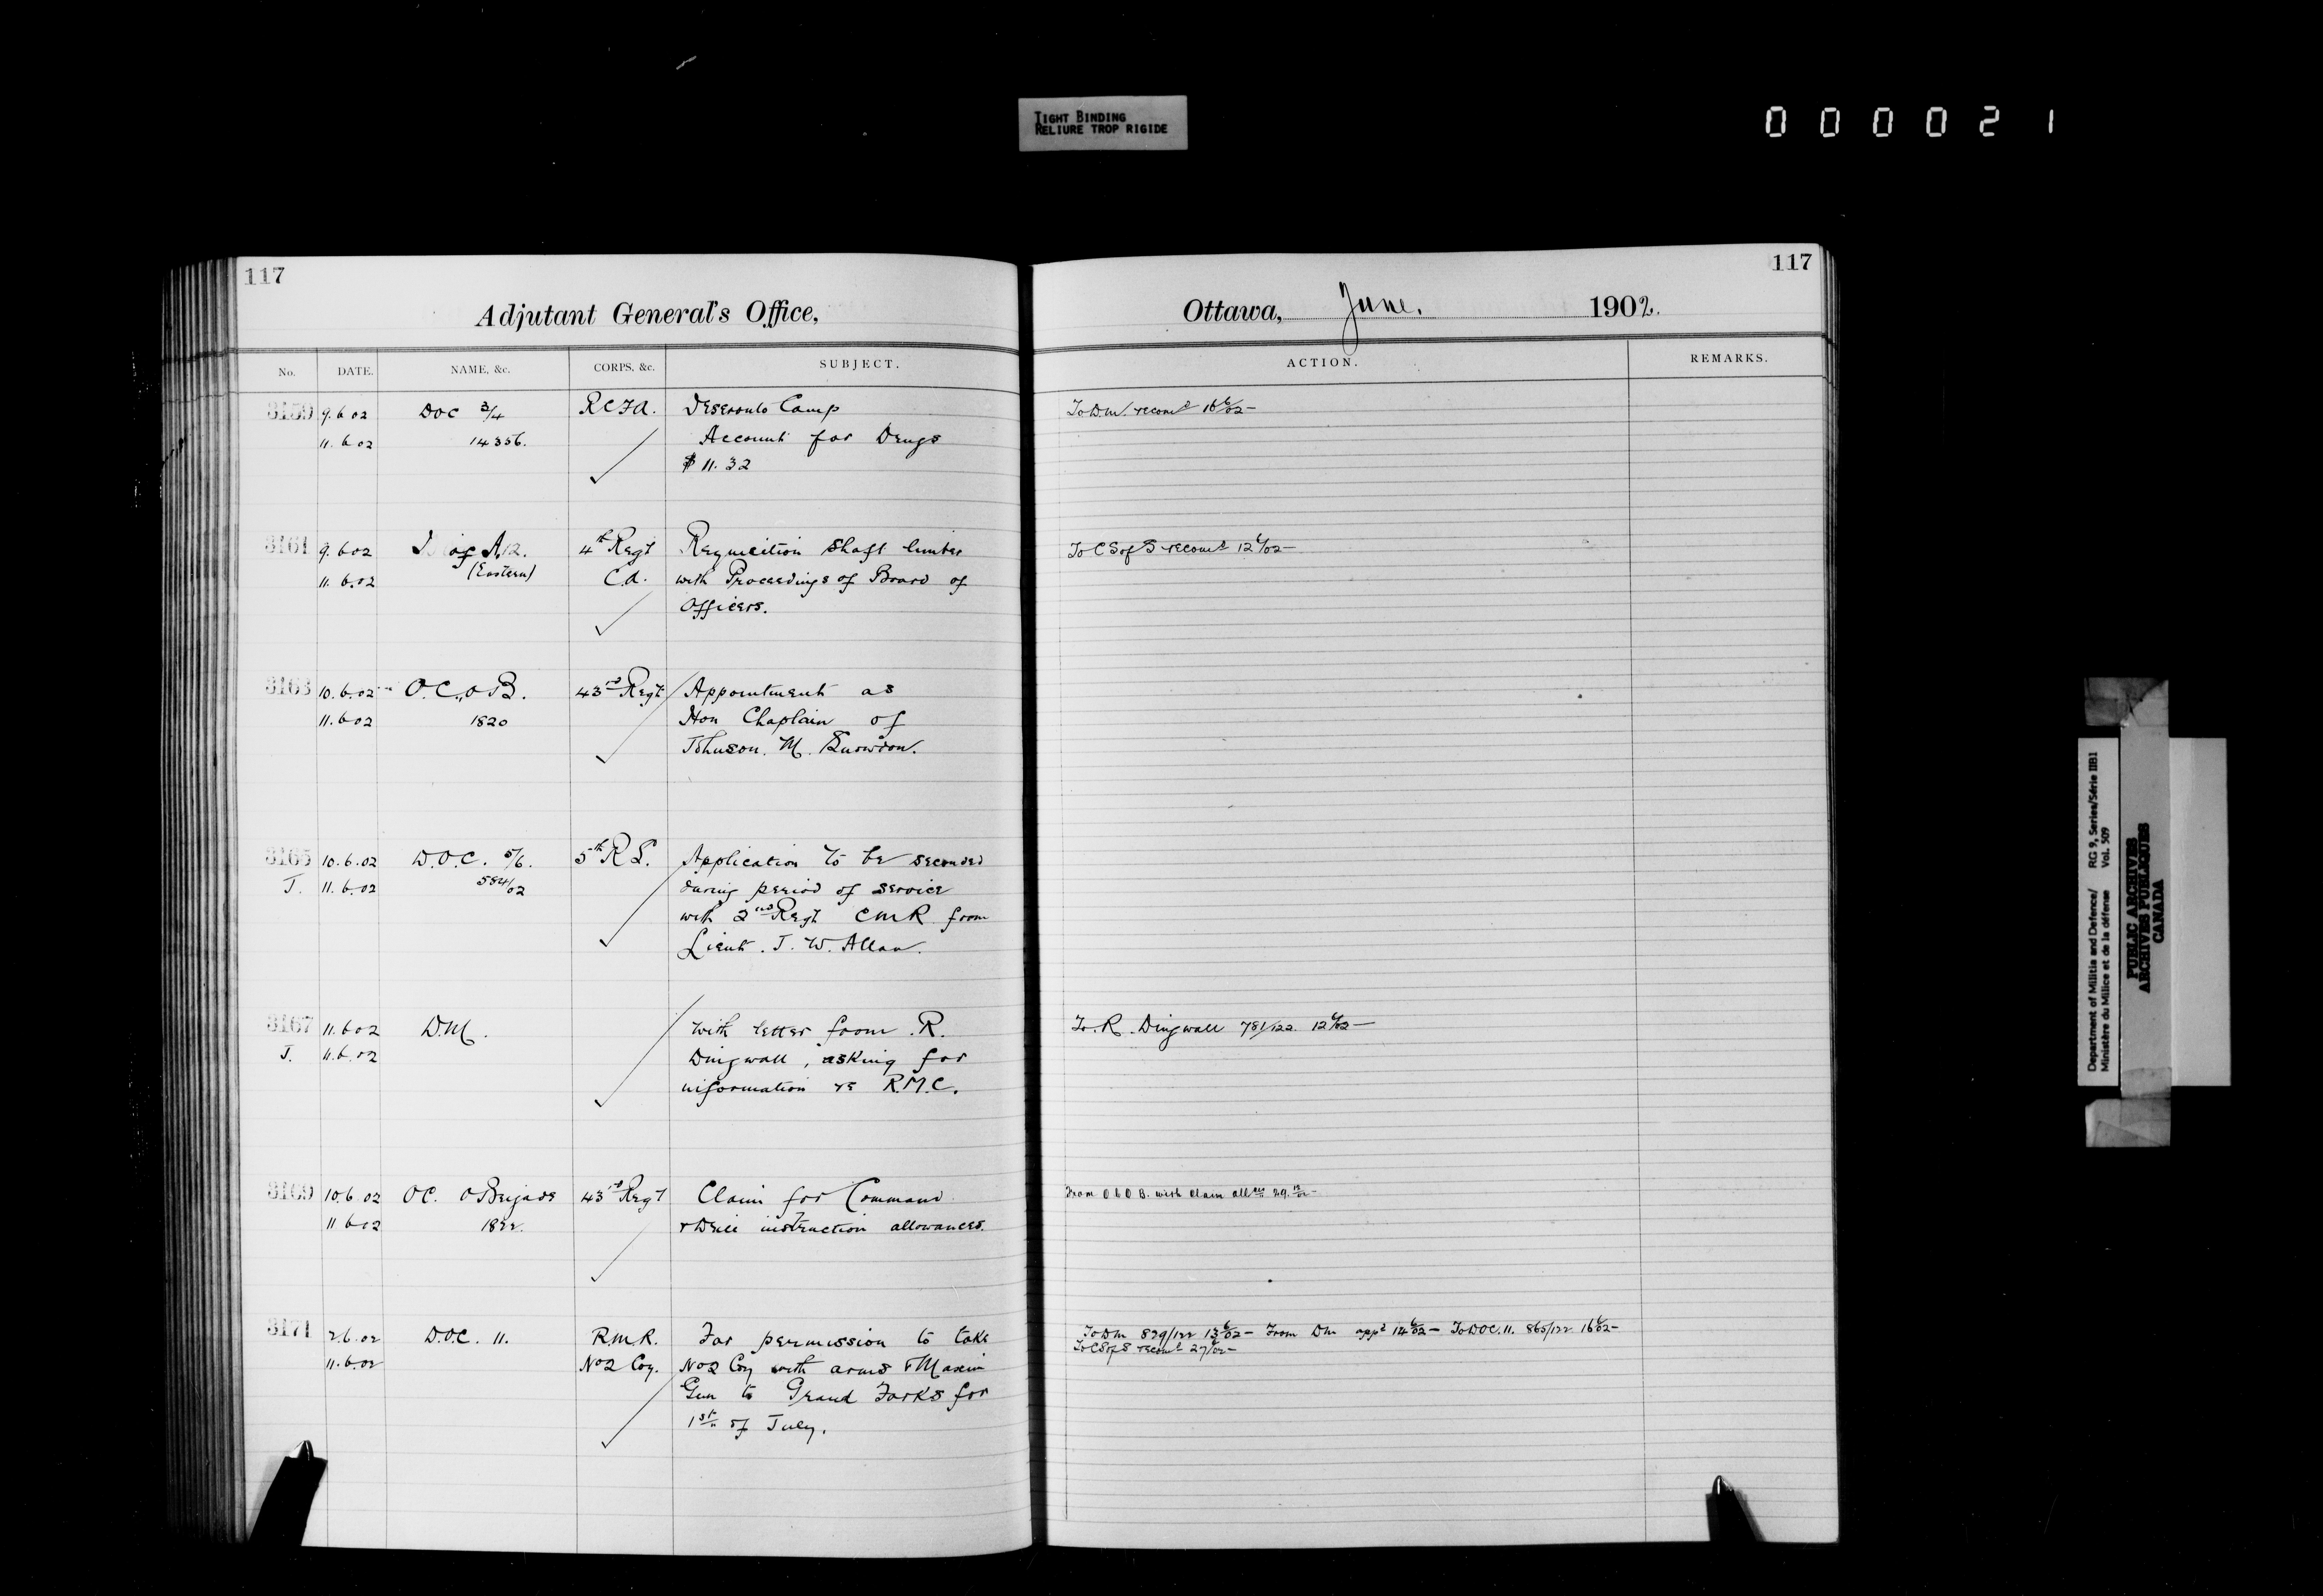 TIGHT BINDING
RELIURE TROP RIGIDE
000021
117
Adjutant General's Office,
No. DATE. NAME, &c. CORPS, &c. SUBJECT.
3159 9.6.02 DOC 3/4 RCFA. Deseronto Camp
11.6.02 14356. Account for Drugs
$11.32
3161 9.6.02 I of A. 4th Regt Requisition Shaft limber
11.6.02 (Eastern) C.A. with Proceedings of Board of
Officers.
3163 10.6.02 O.C. O.B. 43rd Regt Appointment as
11.6.02 1820 Hon Chaplain of
Johnson. M. Snowdon.
3165 10.6.02 D.O.C. 5/6. 5th R S. Application to be seconded
J. 11.6.02 584/02 during period of service
with 2nd Regt CMR from
Lieut. J. W. Allan.
3167 11.6.02 D.M. With letter from R.
J. 11.6.02 Dingwall, asking for
information re R.M.C.
3169 10.6.02 OC. OBrigade 43rd Regt Claim for Command
11.6.02 1822. & Drill instruction allowances.
3171 2.6.02 D.O.C. 11. R.M.R. For permission to take
11.6.02 No2 Coy. No2 Coy with arms & Maxim
Gun to Grand Forks for
1st of July.
117
Ottawa, June. 1902.
ACTION. REMARKS.
To D.M. recomd 16 6/02 —
To C S of S recomd 12 6/02 —
To R. Dingwall 781/122 12 6/02 —
From O C O B. with Claim
To DM 829/122 13 6/02 — From DM appd 14 6/02 — To DOC. 11. 865/122 16 6/02 —
To C S of S recomd 27 6/02 —
Department of Militia and Defence/ RG 9, Series/Série IIB1
Ministère du Milice et de la défense Vol. 509
PUBLIC ARCHIVES
ARCHIVES PUBLIQUES
CANADA